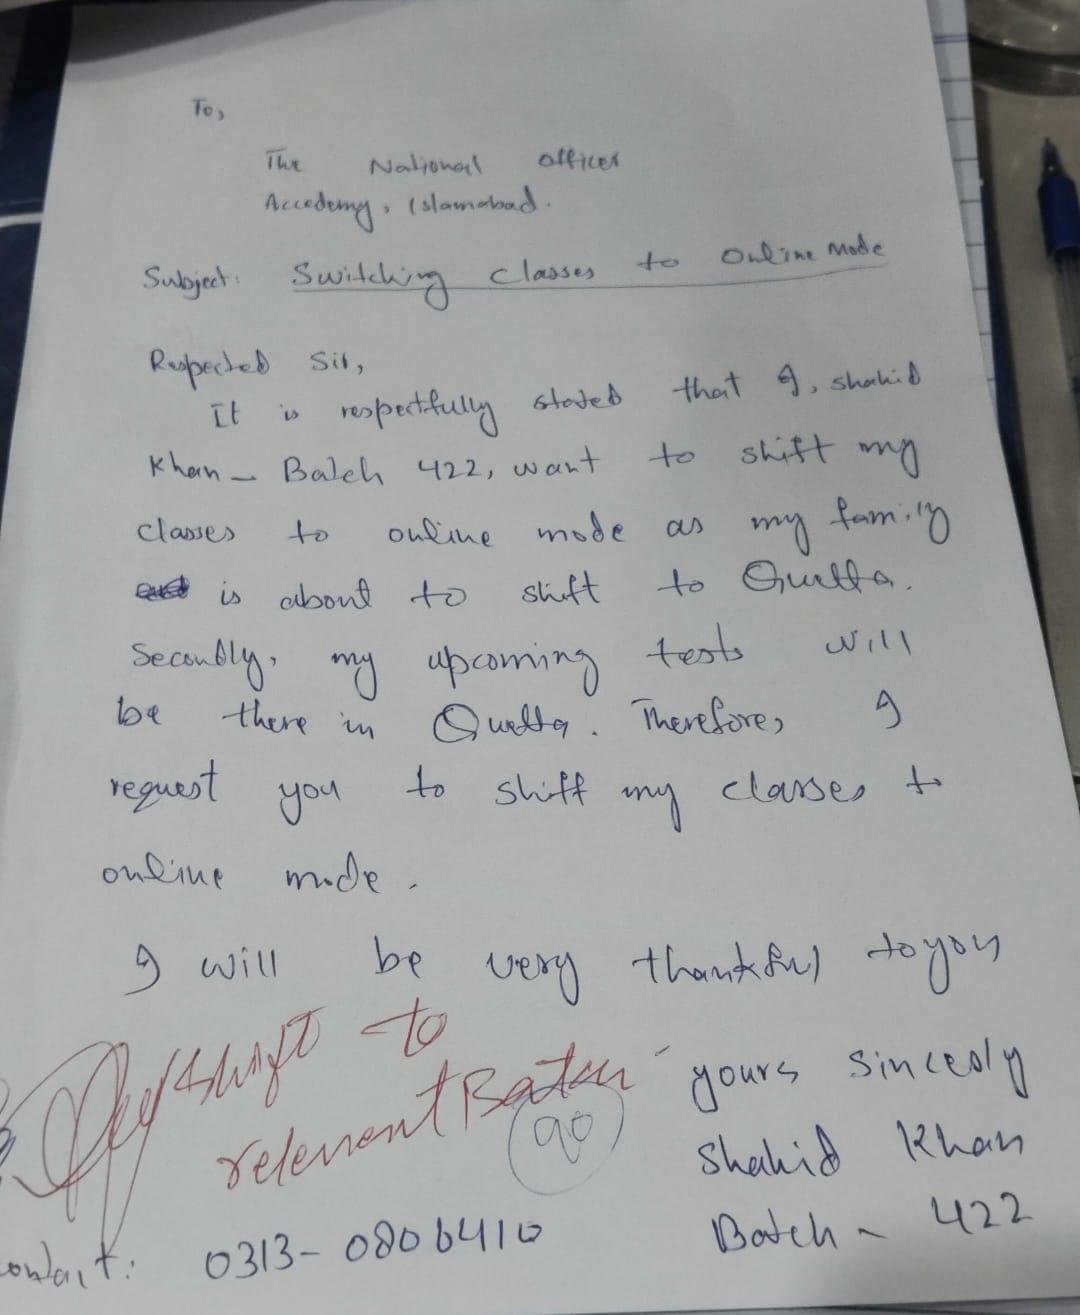 To,
The National Officer
Accedemy, Islamabad.
Subject: Switching classes to Online Mode
Respected Sir,
It is respectfully stated that I, shahid
Khan - Batch 422, want to shift my
classes to online mode as my family
is about to shift to Quetta.
Secondly, my upcoming tests will
be there in Quetta. Therefore, I
request you to shift my classes to
online mode.
I will be very thankful to you
shift to
relevent Batch
90
yours sincerly
Shahid Khan
Batch - 422
contact: 0313-0806410